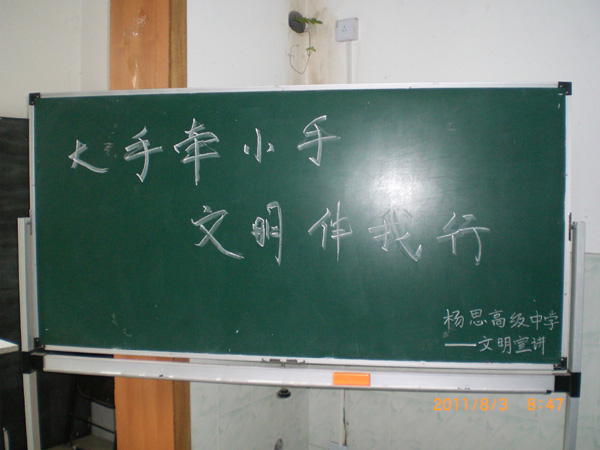 大手牵小手
文明伴我行
杨思高级中学
——文明宣讲
2011/8/3 8:47